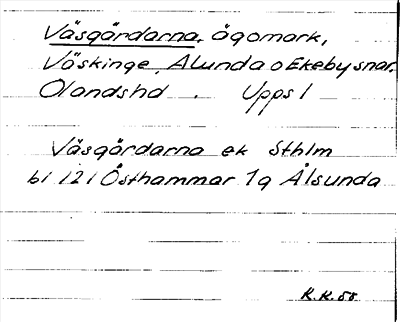 Väsgärdarna, ägomark,
Väskinge, Alunda o Ekeby snar.
Olandshd . Upps l
Väsgärdarna ek Sthlm
bl 121 Östhammar 1q Ålsunda
R.K. 58